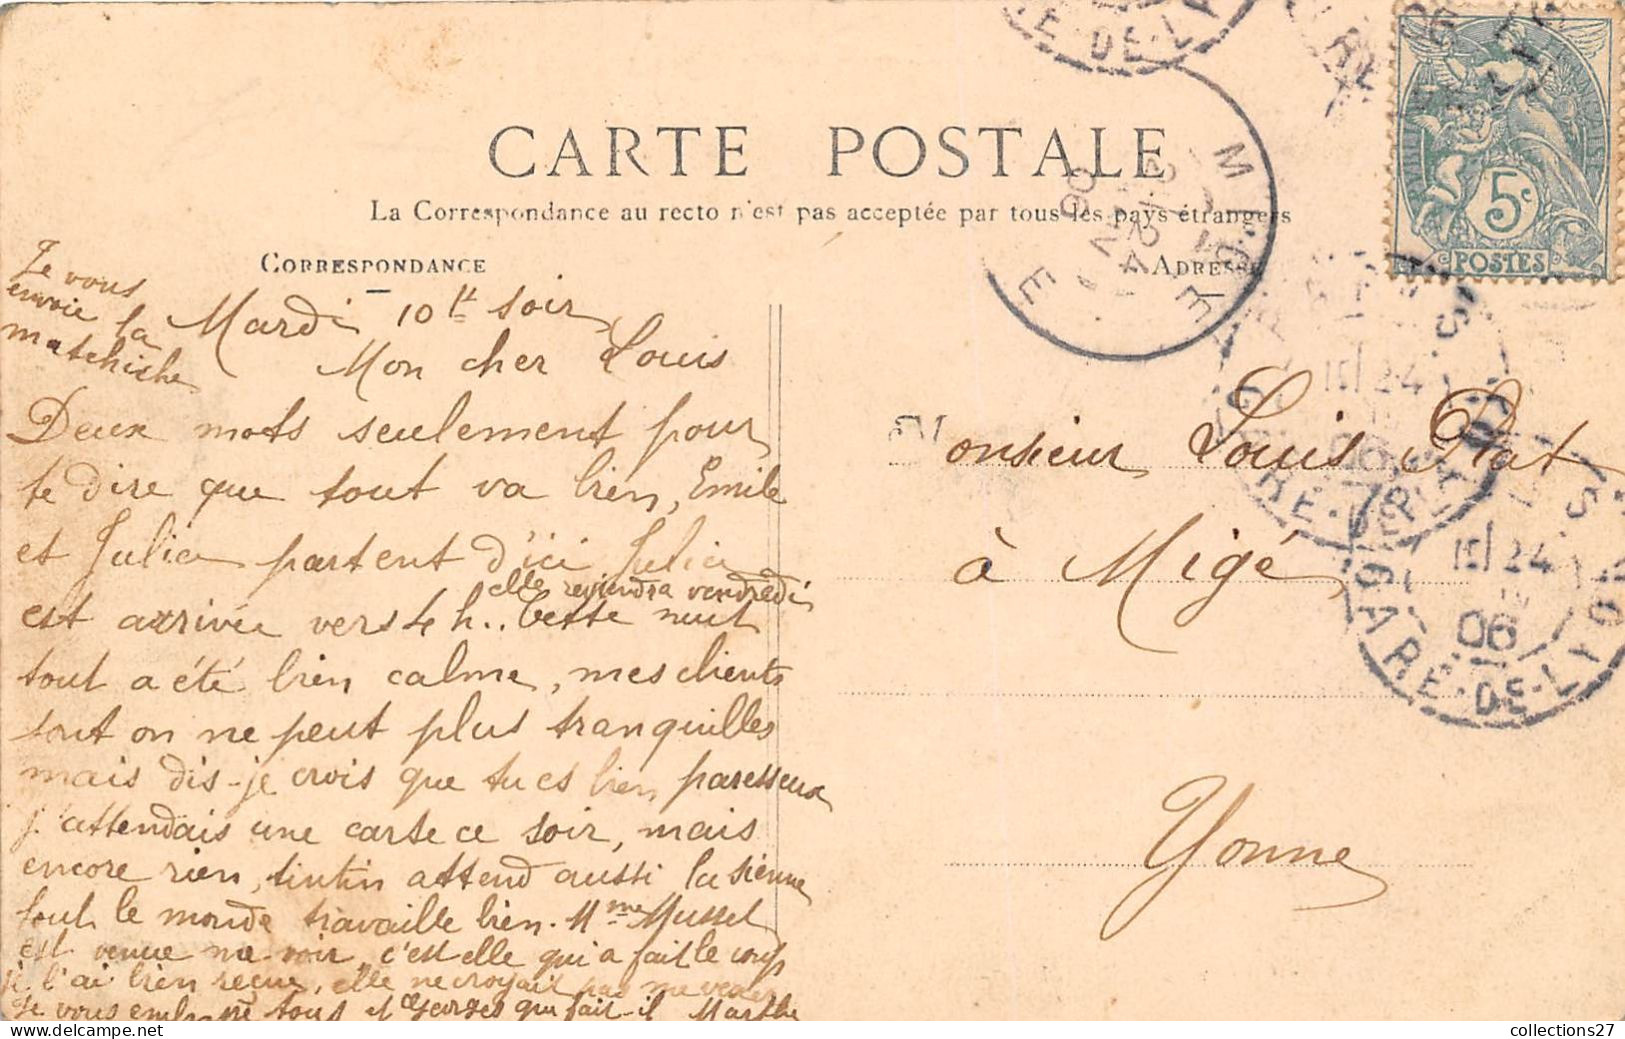 CARTE POSTALE
La Correspondance au recto n'est pas acceptée par tous les pays étrangers
CORRESPONDANCE
ADRESSE
Je vous
envoie la
matchiche
Mardi 10 h soir
Mon cher Louis
Deux mots seulement pour
te dire que tout va bien, Emile
et Julia partent d'ici Julia
elle reviendra vendredi
est arrivée vers 4 h.. Cette nuit
tout a été bien calme, mes clients
sont on ne peut plus tranquilles
mais dis-je crois que tu es bien paresseux
j'attendais une carte ce soir, mais
encore rien, tintin attend aussi la sienne
tout le monde travaille bien. Mme Mussel
est venue me voir, c'est elle qui a fait le coup
je l'ai bien reçue, elle ne croyait pas me
Je vous embrasse tous et Georges que fait-il Marthe
Monsieur Louis Prat
à Migé
Yonne
5c
POSTES
MIGÉ
GARE-DE-LYON
15/24
06
GARE-DE-LYON
15/24
06
RE-DE-LY
collections27